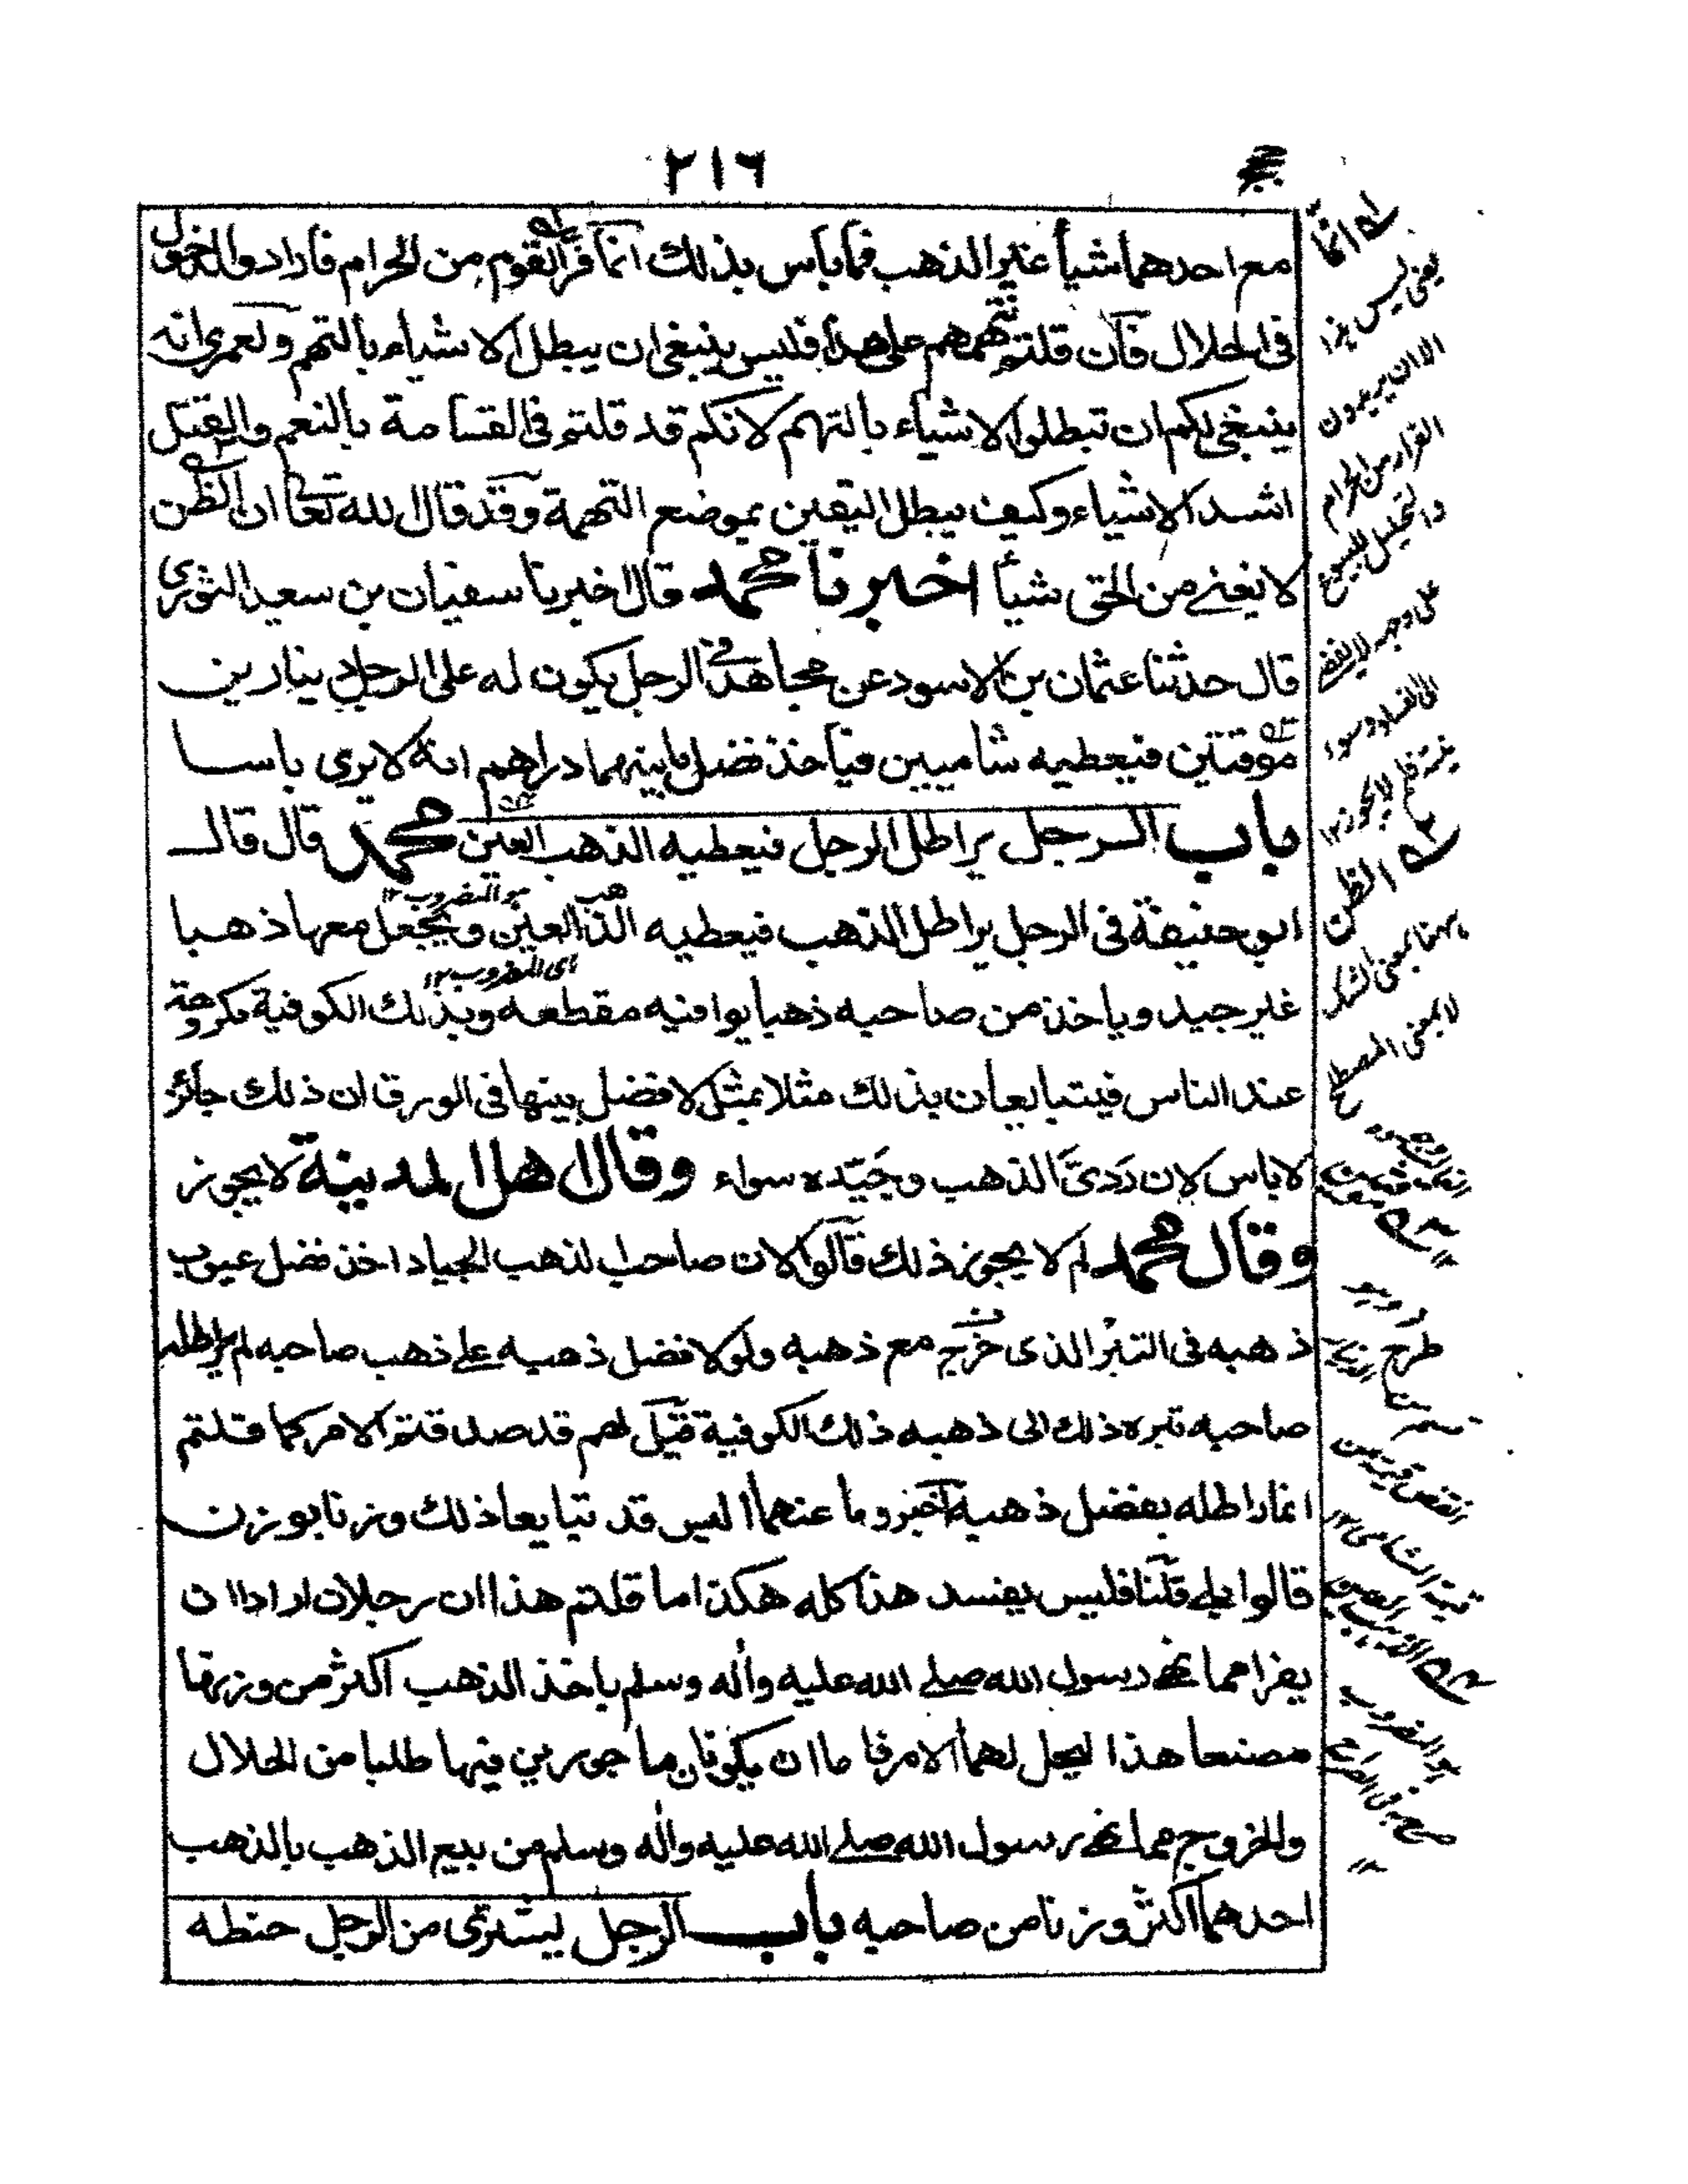 ٢١٦
مع احدهما شيأ غير الذهب فما بأس بذلك انما فر القوم من الحرام فارادوا الدخول
فى الحلال فان قلتم نتهمهم على هذا فليس ينبغى ان يبطل الاشياء بالتهم ولعمرى انه
ينبغى لكم ان تبطلوا الاشياء بالتهم لانكم قد قلتم فى القسامة بالنعم والقتل
اشد الاشياء وكيف يبطل اليقين بموضع التهمة وقد قال الله تعالى ان الظن
لا يغنى من الحق شيأ اخبرنا محمد قال اخبرنا سفيان بن سعيد الثورى
قال حدثنا عثمان بن الاسود عن مجاهد فى الرجل يكون له على الرجل دينارين
موقتتين فيعطيه شاميين فيأخذ فضل ما بينهما دراهم انه لا يرى باسا
باب الرجل يراطل الرجل فيعطيه الذهب العين محمد قال قال
ابو حنيفة فى الرجل يراطل الذهب فيعطيه الذهب العين ويجعل معها ذهبا
غير جيد وياخذ من صاحبه ذهبا يوافيه مقطعه وبذلك الكوفية مكروهة
عند الناس فيتبايعان بذلك مثلا بمثل لا فضل بينها فى الورق ان ذلك جائز
لا باس لان ردىّ الذهب وجيّده سواء وقال اهل المدينة لا يجوز
وقال محمد لم لا يجوز ذلك قالوا لان صاحب الذهب الجياد اخذ فضل عيوب
ذهبه فى التبر الذى خرج مع ذهبه ولولا فضل ذهبه على ذهب صاحبه لم يراطله
صاحبه تبره ذلك الى ذهبه ذلك الكوفية قيل لهم قد صدقتم الامر كما قلتم
انما راطله بفضل ذهبه اخبروما عنهما اليس قد تبايعا ذلك وزنا بوزن
قالوا بلى قلنا فليس يفسد هذا كله هكذا ما قلتم هذا ان رجلان ارادا ان
يفرا مما نهى رسول الله صلى الله عليه واله وسلم ياخذ الذهب اكثر من وزنها
فصنعا هذا ليحل لهما الامر فاما ان يكونا ماجورين فيها طلبا من الحلال
والخروج مما نهى رسول الله صلى الله عليه واله وسلم من بيع الذهب بالذهب
احدهما اكثر وزنا من صاحبه باب الرجل يشترى من الرجل حنطه
انما
يعنى ليس هذا
الا ان يريدون
الفرار من الحرام
الظن
ههنا بمعنى الشك
لا بمعنى المصطلح